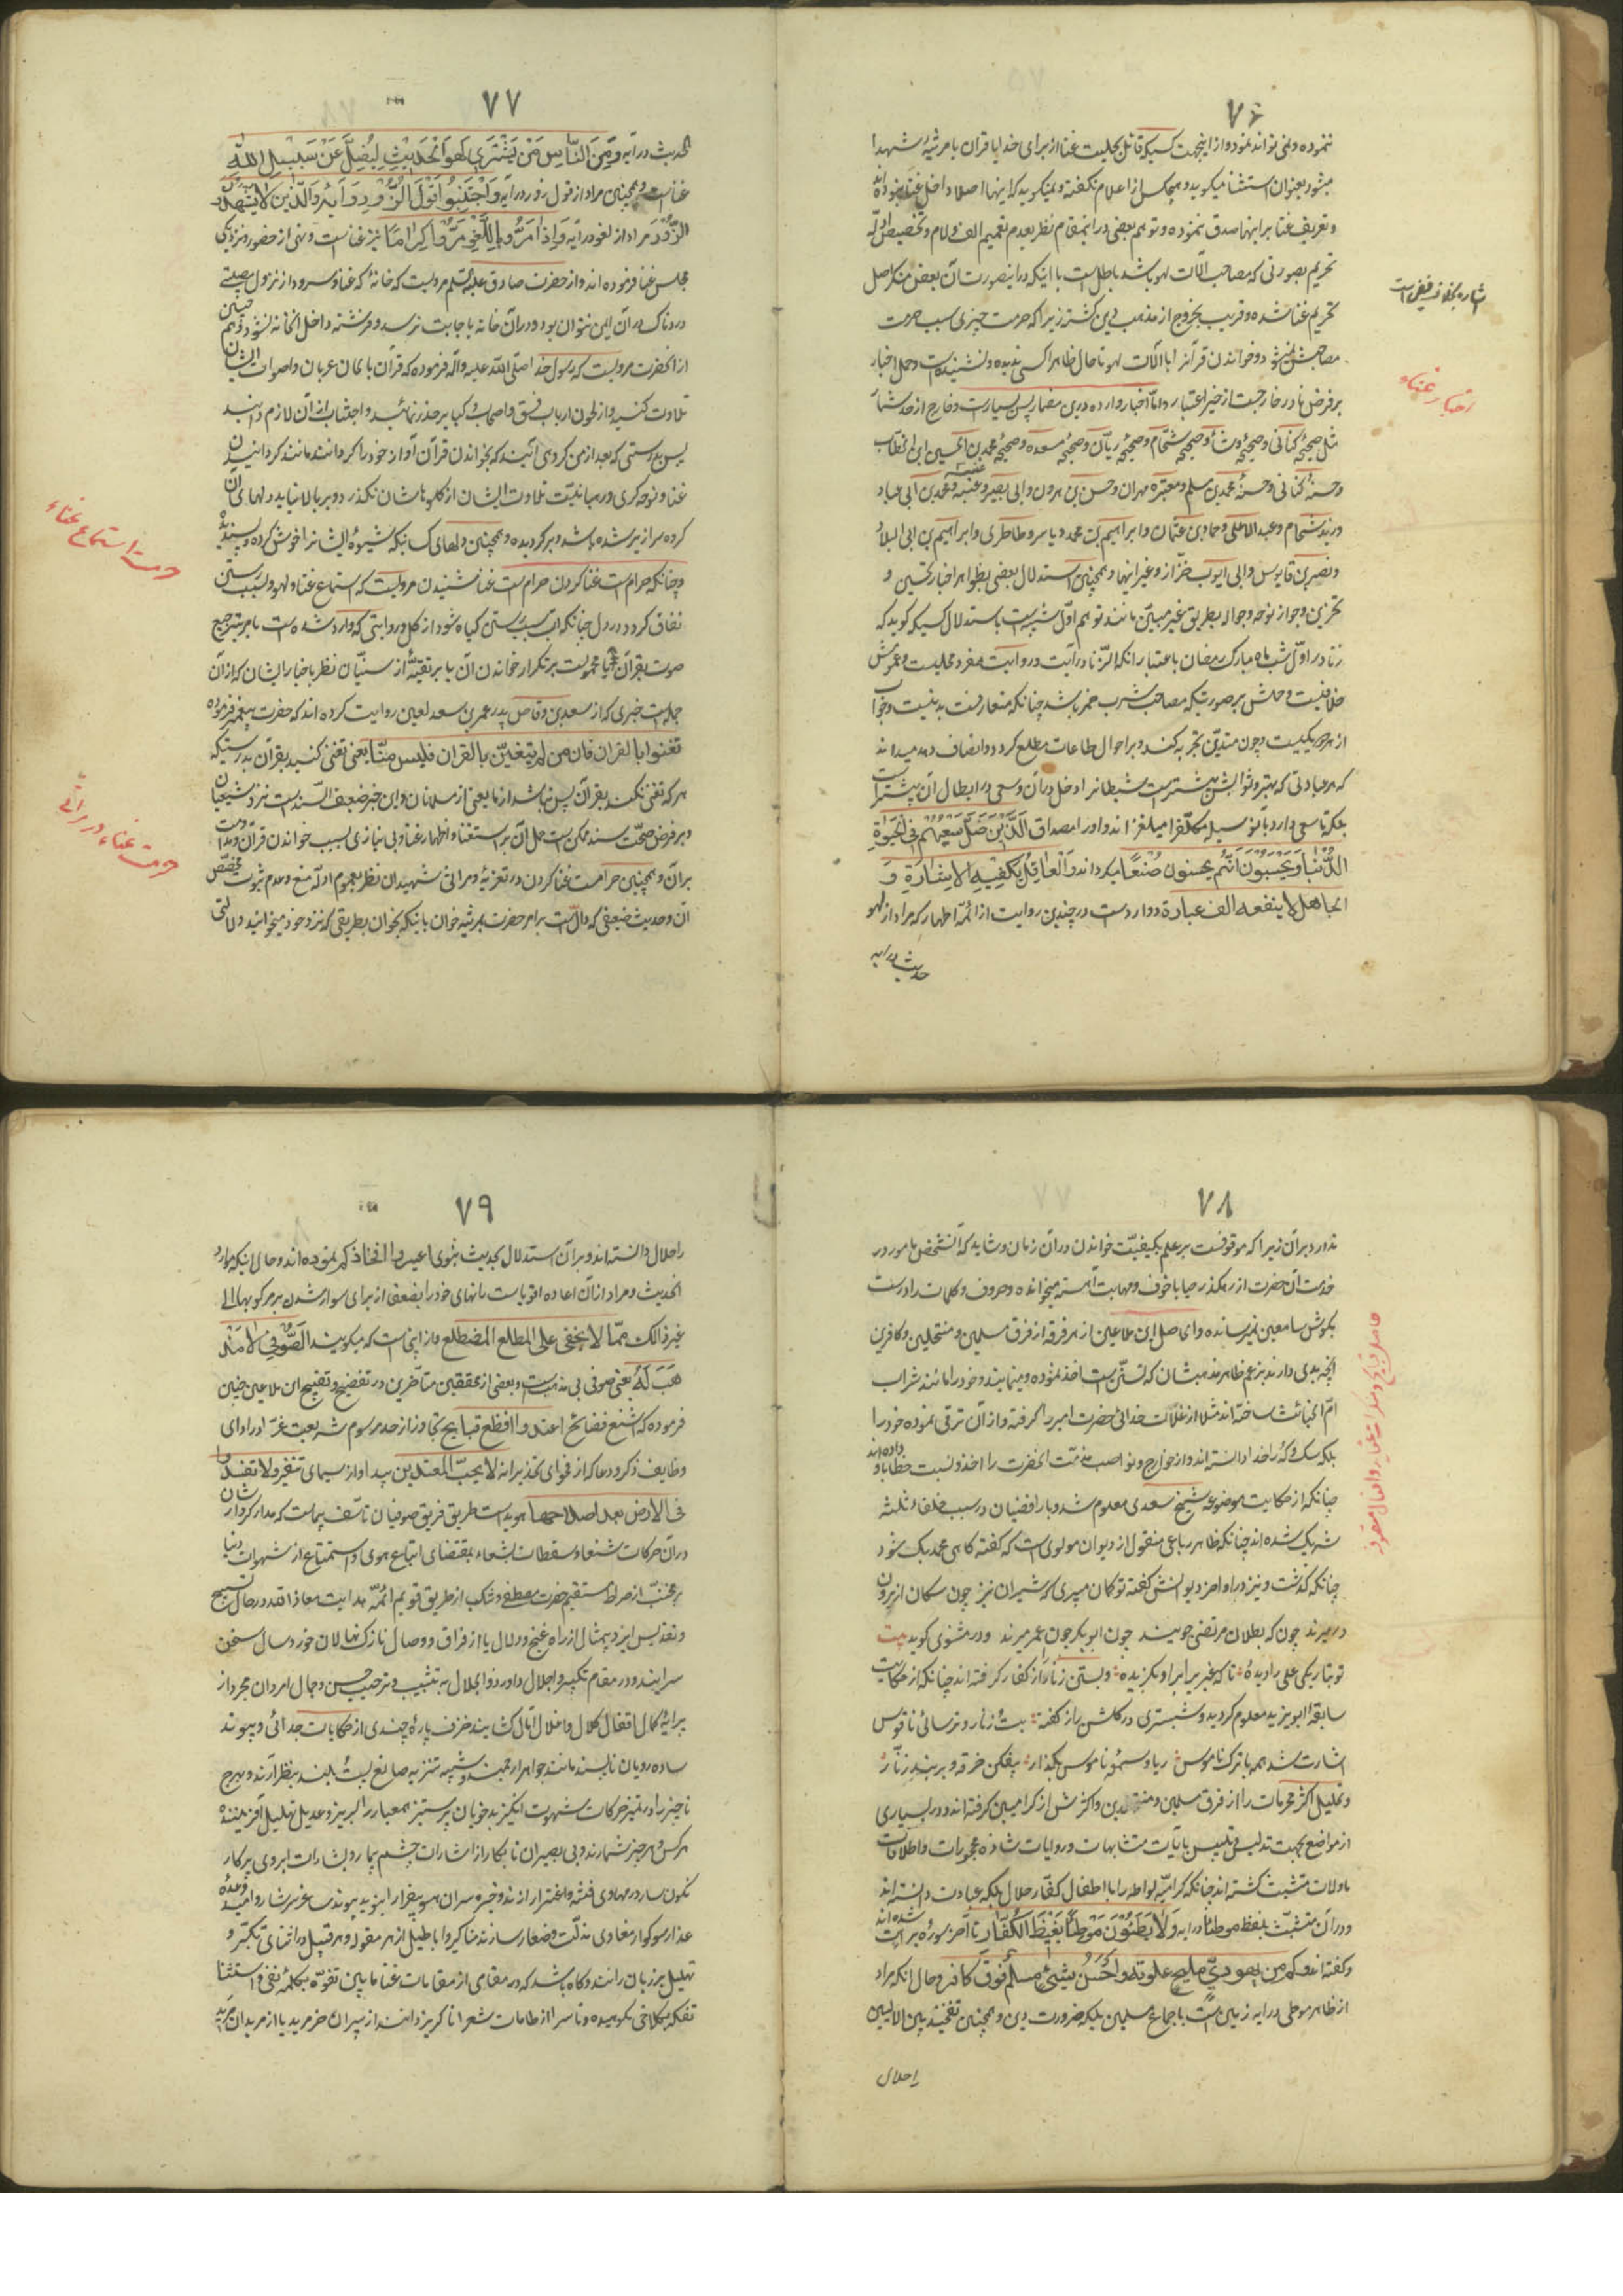 ۷۶
ننموده و نمی تواند نمود و از اینجهت کسیکه قائل بحلیت غنا از برای خدا یا قران یا مرثیهٔ شهدا
میشود بعنوان استثنا میکوید و هیچکس از اعلام نکفته و نمیکوید که اینها اصلا داخل غنا نبوده اند
و تعریف غنا بر اینها صدق ننموده و توهم بعضی در اینمقام نظر بعدم تعمیم الف و لام و تخصیص ادلّه
تحریم بصورتی که مصاحب آلات لهو باشد باطل است با اینکه در اینصورت آن بعض منکر اصل
تحریم غنا شده و قریب بخروج از مذهب و دین کشته زیرا که حرمت چیزی سبب حرمت
مصاحبش نمیشود و خواندن قرآن با آلات لهو تا حال ظاهرا کسی ندیده و نشنیده است و حمل اخبار
بر فرض نادر خارجست از خیر اعتبار و امّا اخبار وارده درین مضمار پس بسیارست و خارج از حد شمار
مثل صحیحهٔ کنانی و صحیحهٔ وشأ و صحیحهٔ شحّام و صحیحهٔ ریّان و صحیحهٔ مسعده و صحیحهٔ محمد بن الحسین ابی الخطاب
و حسنهٔ کنانی و حسنهٔ محمد بن مسلم و معتبرهٔ مهران و حسن بن هرون و ابی بصیر و عنبسه و محمد بن ابی عباد
و زید شحام و عبد الاعلی و حماد بن عثمان و ابراهیم بن محمد و یاسر و طاطری و ابراهیم بن ابی البلاد
و نصر بن قابوس و ابی ایوب خزّاز و غیر اینها و همچنین استدلال بعضی بظواهر اخبار تحسین و
تحزین و جواز نوحه و حواله بطریق غیر مبیّن مانند توهم اوّل شبیه است باستدلال کسیکه کوید که
زنا در اوّل شب ماه مبارک رمضان باعتبار انکه الزّنا در آیت و روایت مفرد محلیست و عمومش
ظاهر نیست و حملش بر صورتیکه مصاحب شرب خمر باشد چنانکه متعارفست بد نیست و جواب
از هر دو یکیست و چون متدیّن تجربه کند و بر احوال طاعات مطلع کردد و انصاف دهد میداند
که هر عبادتی که بهتر و ثوابش بیشترست شیطانرا دخل در آن و سعی در ابطال آن بیشترست
بلکه تا سعی دارد بآن وسیله مکلّفرا میلغزاند و او را مصداق الَّذینَ ضَلَّ سَعْیُهُمْ فِی الْحَیوةِ
الدُّنْیا وَ یَحْسَبُونَ اَنَّهُمْ یُحسِنونَ صُنْعًا میکرداند وَ الْعاقِلُ یَکْفیهِ الاِشارَةِ وَ
الجاهل لا ینفعه الف عبارة و وارد است در چندین روایت از ائمّه اطهار که مراد از لهو
حدیث در ایه
اخبار غناء
۷۷
الحدیث در آیهٔ وَ مِنَ النّاسِ مَنْ یَشْتَری لَهْوَ الْحَدیثِ لِیُضِلَّ عَنْ سَبیلِ اللّٰهِ
غناست و همچنین مراد از قول زور در آیهٔ وَ اجْتَنِبُوا قَوْلَ الزُّورِ و در آیهٔ وَ الَّذینَ لا یَشْهَدُونَ
الزُّورَ و مراد از لغو در ایه وَ اِذا مَرُّوا بِاللَّغْوِ مَرُّوا کِرامًا نیز غناست و نهی از حضور و نزدیکی
مجلس غنا فرموده اند و از حضرت صادق علیه السّلم مرویست که خانهٔ که غنا و سرود از نزول مصیبتی
دردناک در آن ایمن نتوان بود و در آن خانه دعا باجابت نرسد و فرشته داخل انخانه نشود و هم چنین
از انحضرت مرویست که رسول خدا صلّی اللّٰه علیه و آله فرموده که قرآن بالحان عربان و اصوات ایشان
تلاوت کنید و از لحون ارباب فسق و اصحاب کبایر حذر نمائید و اجتناب از آن لازم دانید
پس بدرستی که بعد از من کروهی آیند که بخواندن قرآن آواز خود را کردانند مانند کردانیدن
غنا و نوحه کری و رهبانیّت تلاوت ایشان از کلوهاشان نکذرد و بر بالا نیاید دلهای ایشان
کرده سرازیر شده باشد و برکردیده و همچنین دلهای کسانیکه شیوهٔ ایشانرا خوش کرده و پسندیده
و چنانکه حرام است غنا کردن حرام است غنا شنیدن مرویست که استماع غنا و لهو و لعب سبب رستن
نفاق کردد در دل چنانکه آب سبب رستن کیاه شود از کل و روایتی که وارد شده است بامر بترجیع
صوت بقرآن یا محمولست بر تکرار خواندن آن یا بر تقیّهٔ از سنیّان نظر باخبار ایشان که از آن
جمله است خبری که از سعد بن وقاص پدر عمر بن سعد لعین روایت کرده اند که حضرت پیغمبر فرموده
تغنوا بالقران فان من لم یتغنّ بالقران فلیس منّا یعنی تغنی کنید بقرآن بدرستیکه
هر که تغنی نکند بقرآن پس نباشد از ما یعنی از مسلمانان و این خبر ضعیف السّند است نزد شیعیان
و بر فرض صحّت سند ممکن است حمل آن بر استغنا و اظهار غنا و بی نیازی بسبب خواندن قرآن و مداومت
بر آن و همچنین حرامست غنا کردن در تعزیهٔ و مراثی شهیدان نظر بعموم ادلّه منع و عدم ثبوت مخصّص
آن و حدیث ضعیفی که دالّ است بر امر حضرت بمرثیه خوان باینکه بخوان بطریقی که نزد خود میخوانید دلالتی
حرمت استماع غناء
حرمت غناء در مراثی
۷۸
ندارد بر آن زیرا که موقوفست بر علم بکیفیّت خواندن در آن زمان و شاید که آنشخص مامور در
خدمت آن حضرت از رهکذر حیا یا خوف و مهابت آهسته میخوانده و حروف و کلمات را درست
بکوش سامعین نمیرسانده و الحاصل این ملاعین از هر فرقه از فرق مسلمین و منتحلین و کافرین
انچه بدی دارند بزعم ظاهر مذهبشان که تسنّن است اخذ نموده و مینمایند و خود را مانند شراب
امّ الخبائث ساخته اند مثلا از غلات خدائی حضرت امیر را کرفته و از آن ترقی نموده خود را
بلکه سک و کربه را خدا دانسته اند و از خوارج و نواصب مذمّت انحضرت را اخذ و نسبت خطا باو داده اند
چنانکه از حکایت موضوعه شیخ سعدی معلوم شد و با رافضیان در سبب خلفاء ثلثه
شریک شده اند چنانکه ظاهر رباعی منقول از دیوان مولوی است که کفته کاهی محمد بیک شود
چنانکه کذشت و نیز در اواخر دیوانش کفته تو کمان میبری که شیران نیز چون سکان از برون
درمیرند چون که بطلان مرتضی جویند چون ابوبکر چون عمر میرند و در مثنوی کوید بیت
تو بتاریکی علی را دیدهٔ تا که غیری بر او بکزیدهٔ و بستن زنار را از کفار کرفته اند چنانکه از حکایت
سابقهٔ ابویزید معلوم کردید و شبستری در کلشن راز کفته بیت زنار و ترسائی ناقوس
اشارت شد همه با ترک ناموس ریا و سمعه ناموس بکذار بیفکن خرقه و بربند زنّار
و تحلیل اکثر محرمات را از فرق مسلمین و اکثرش از کرامیین کرفته اند و در بسیاری
از مواضع بجهت تدلیس و تلبیس بآیات متشابهات و روایات شاذه مهجورات و اطلاقات
ماولات متشبّث کشته اند چنانکه کرامیّه لواطه را با اطفال کفّار حلال بلکه عبادت دانسته اند
و در آن متشبّث بلفظ موطئا در ایه وَ لا یَطَئُونَ مَوْطِئًا یَغیظُ الْکُفّارَ تا آخر سوره برائت شده اند
و کفته اند و کم من یهودیّ ملیح علوته و احسن شیئ مسلم فوق کافر و حال انکه مراد
از ظاهر موطی در ایه زمین است باجماع مسلمین بلکه ضرورت دین و همچنین تفخیذ بین الالیین
را حلال
۷۹
را حلال دانسته اند و بر آن استدلال بحدیث نبوی اعیروا افخاذکم نموده اند و حال اینکه مراد
الحدیث و مراد از آن اعاده اقویاست رانهای خود را بضعفا از برای سوار شدن بر مرکوبها الی
غیر ذالک ممّا لا یخفی علی المطلع المضطلع و از اینجاست که میکویند الصُّوفی لا مَذْ
هَبَ لَهُ یعنی صوفی بی مذهبست و بعضی از محققین متأخّرین در تفضیح و تقبیح این ملاعین چنین
فرموده که اشنع فضائح اعتدوا و افظع قبایح تجاوز از حد مرسوم شریعت غرّا در ادای
وظایف ذکر و دعا که از فحوای تحذیر انه لا یحبّ المعتدین پیدا و از سیمای تنفیر و لا تفسدوا
فی الارض بعد اصلاحها هویداست طریق فریق صوفیان تاسّف پیماست که مدار کردارشان
در آن حرکات شنعاء و سقطات بشعاء بمقتضای اتباع هوی و استمتاع از شهوات دنیا
بر تجنّب از صراط مستقیم حضرت مصطفی و تنکب از طریق قویم ائمّهٔ هدایت معاذ اللّٰه در حال تسبیح
و تقدیس ایزد بیمثال از راه غنج و دلال یا از فراق و وصال نازک نهالان خورد سال سخن
سرایند و در مقام تکبیر و اجلال داور ذو الجلال به تشبیب و ترحیب حسن و جمال امردان مجرد از
پیرایهٔ کمال اقفال کلال و اغلال آمال کشایند خزف پارهٔ چندی از حکایات جدائی و پیوند
ساده رویان ناپسند مانند جواهر ارجمند و شیمه تنزیه صانع بیت بلند بنظر آرند و هرج
ناچیز را در تمیز حرکات شهوت انکیز بد خویان پرستیز همعیار را لبریز و عدیل تهلیل آفریننده
هر کس و هر چیز شمارند و بی بصیران نابکار از اشارات چشم بیمار و بشارات ابروی پرکار
نکونسار در مهاوی فتنه و اغترار افتند و خیره سران بیقرار ابنوید پیوند ساغر سرشار و امید وعده
عذار سوکوار مغاوی مذلّت و صغار سازند مناکیر و اباطیل از هر مقوله و هر قبیل در اثنای تکبّر و
تهلیل بر زبان رانند و کاه باشد که در مقامی از مقامات غنا مابین تفوّه بکلمهٔ نفی و استثنا
تفکه بکلامی نکوهیده و ناسزا از طامات شعرا ناکریز دانند از سپران خر مرید یا از مریدان مرید